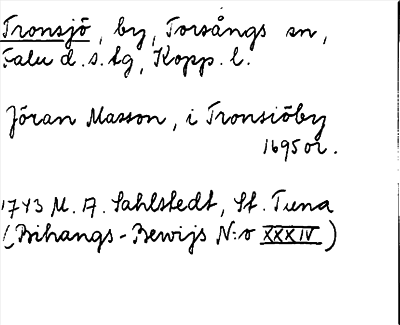 Tronsjö, by, Torsångs sn,
Falu d.s.lg, Kopp. l.
Jöran Masson, i Tronsiöby
1695 or.
1743 M. A. Sahlstedt, St. Tuna
(Bihangs-Bewijs N:o XXXIV)